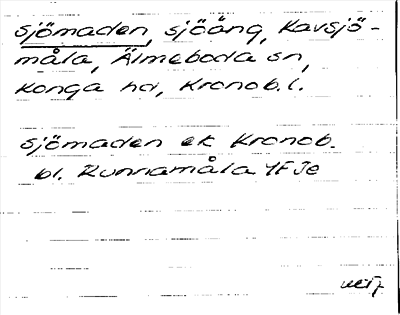 sjömaden, sjöäng, Kavsjö-
måla, Älmeboda sn,
Konga hd, Kronob. l.
sjömaden ek Kronob.
bl. Runnamåla 4F Je